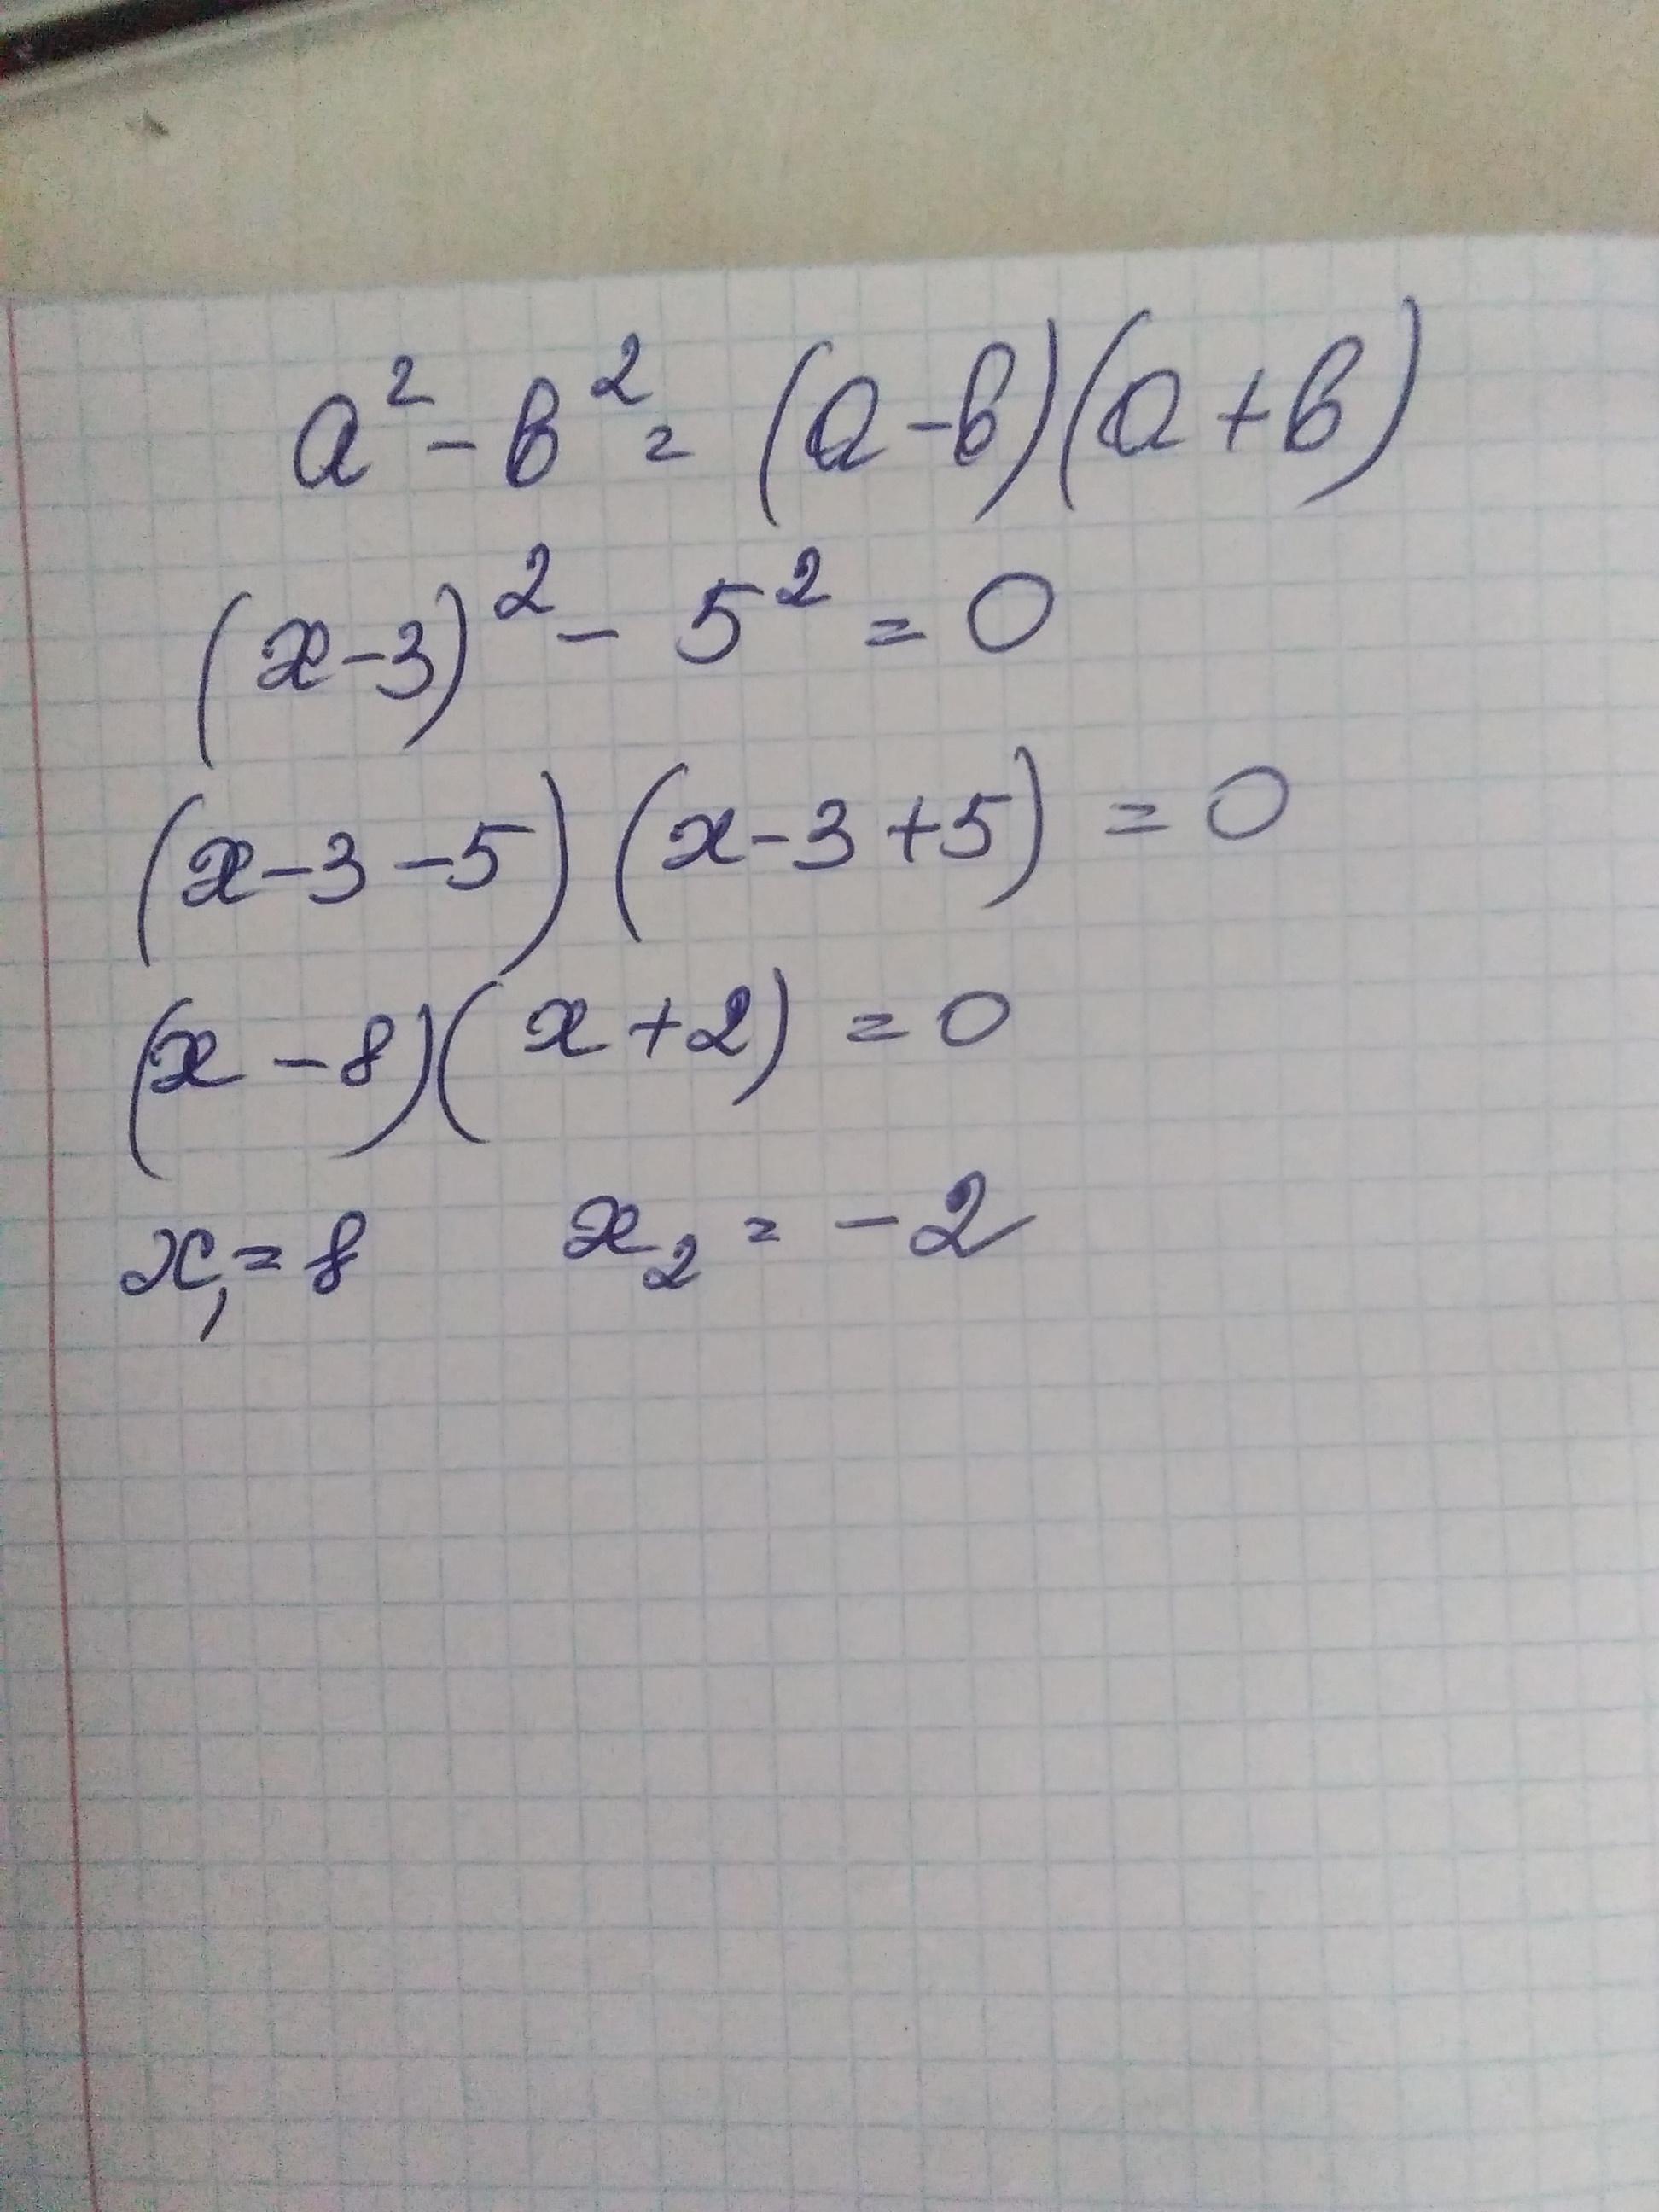 a² - b² = (a - b)(a + b)
(x - 3)² - 5² = 0
(x - 3 - 5)(x - 3 + 5) = 0
(x - 8)(x + 2) = 0
x₁ = 8 x₂ = -2